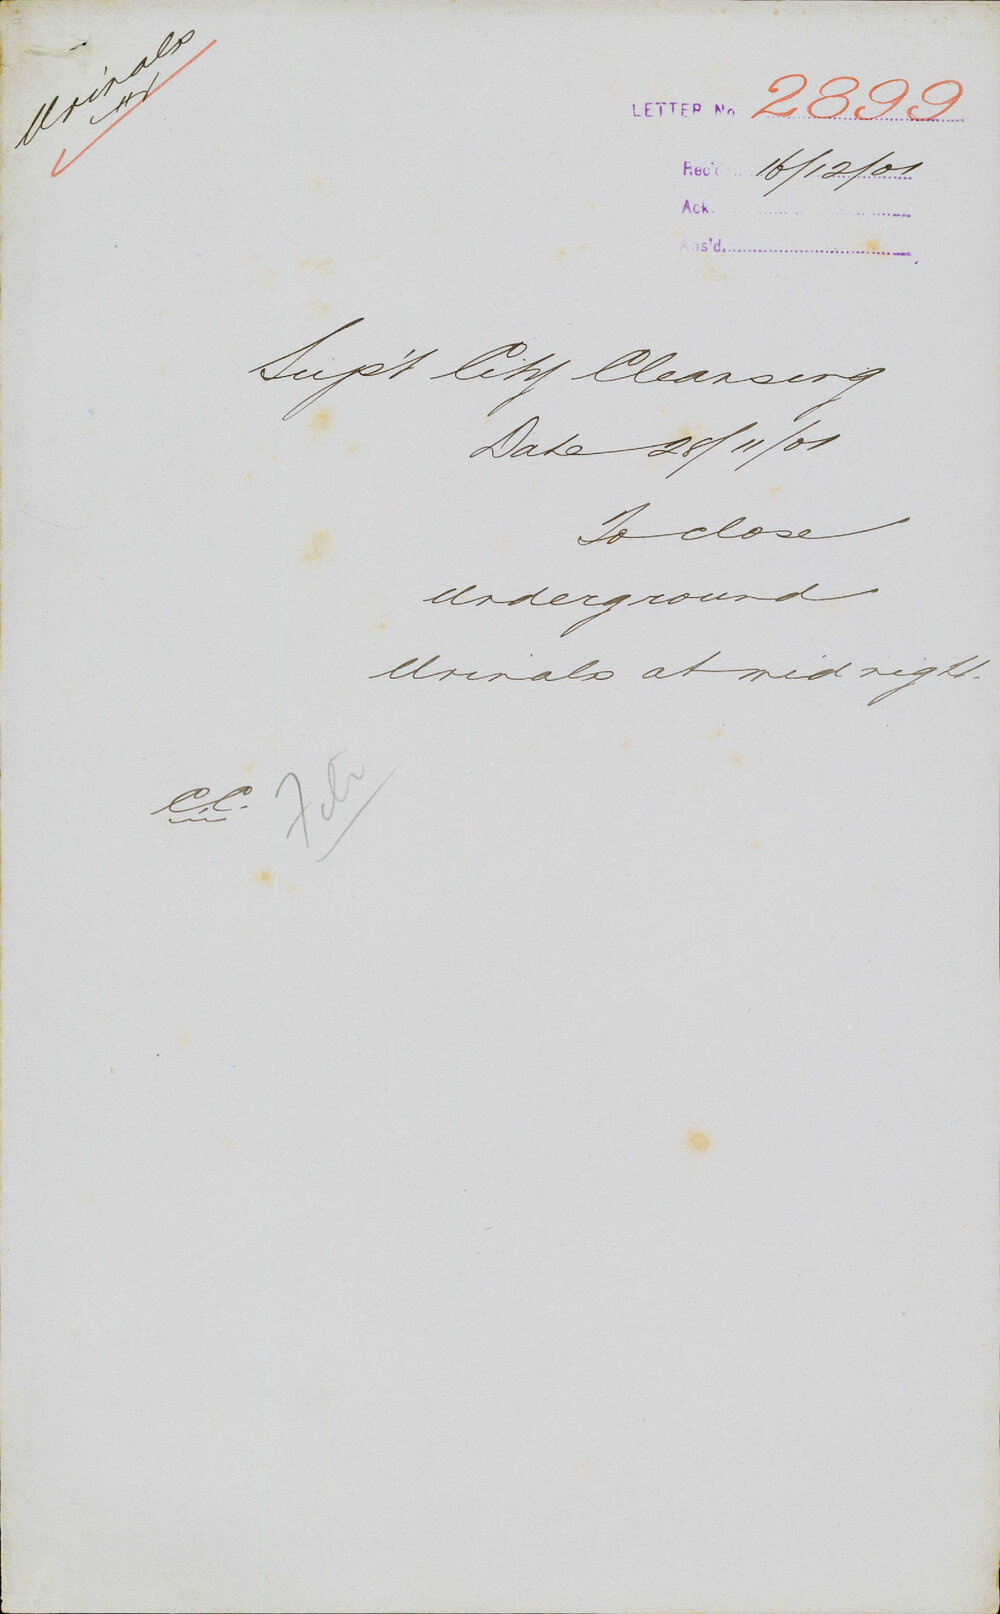 Urinals
LETTER No 2899
Rec'd 16/12/01
Ack.
Ans'd.
Sup't City Cleansing
Date 28/11/01
To close
underground
Urinals at midnight.
C.C.